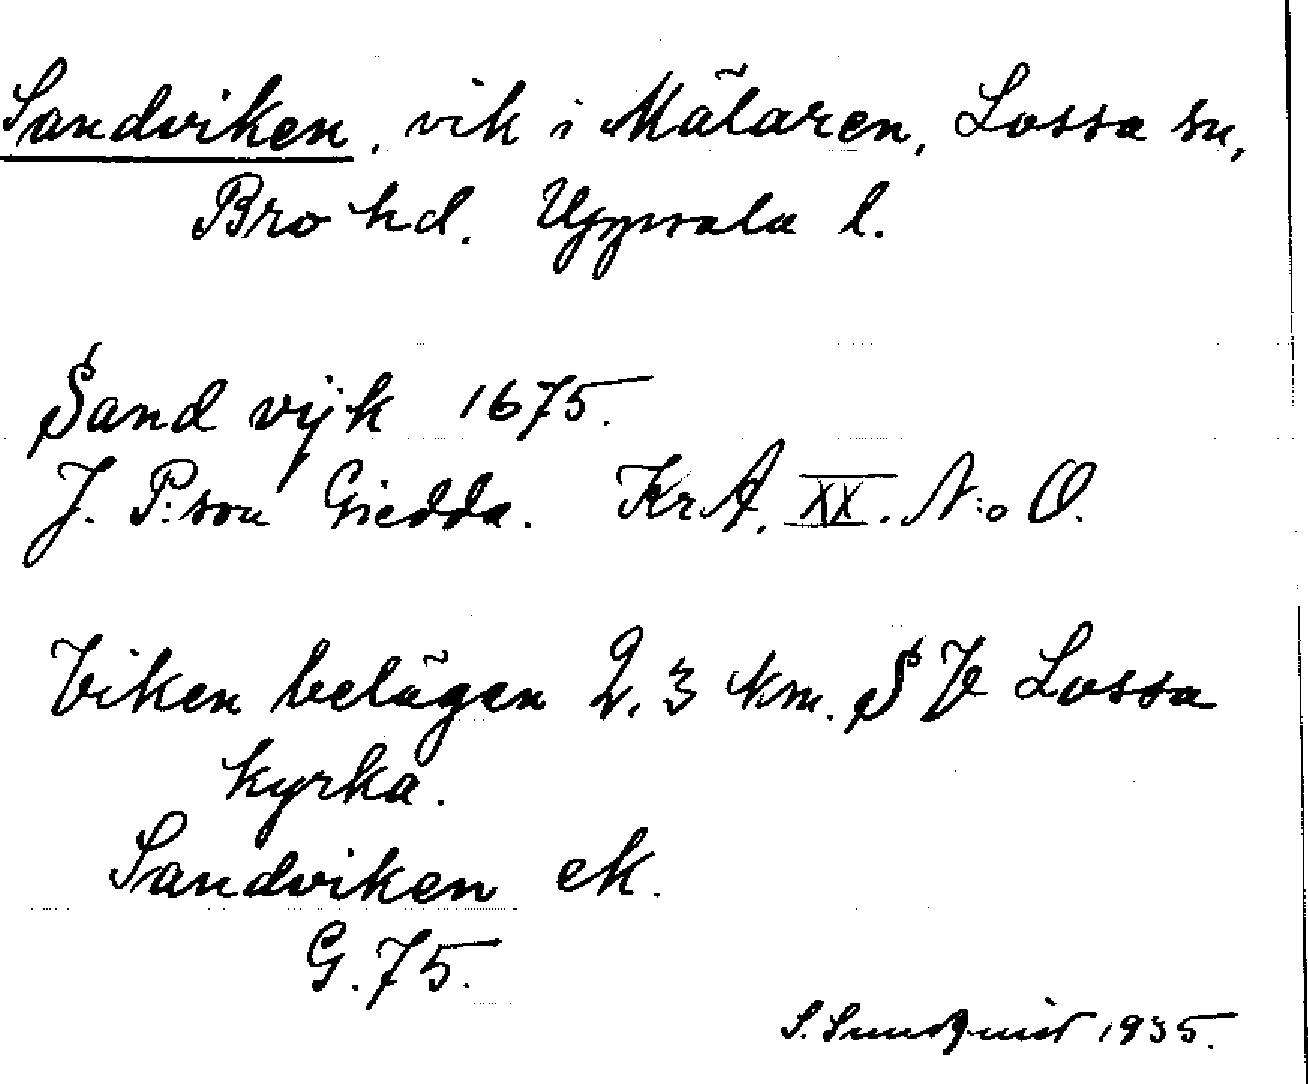 Sandviken, vik i Mälaren, Lossa sn,
Bro hd. Uppsala l.
Sand vijk 1675.
J. P:son Giedda. KrA. XX. N:o O.
Viken belägen 2,3 km. SV Lossa
kyrka.
Sandviken ek.
G. 75.
S. Sundquist 1935.